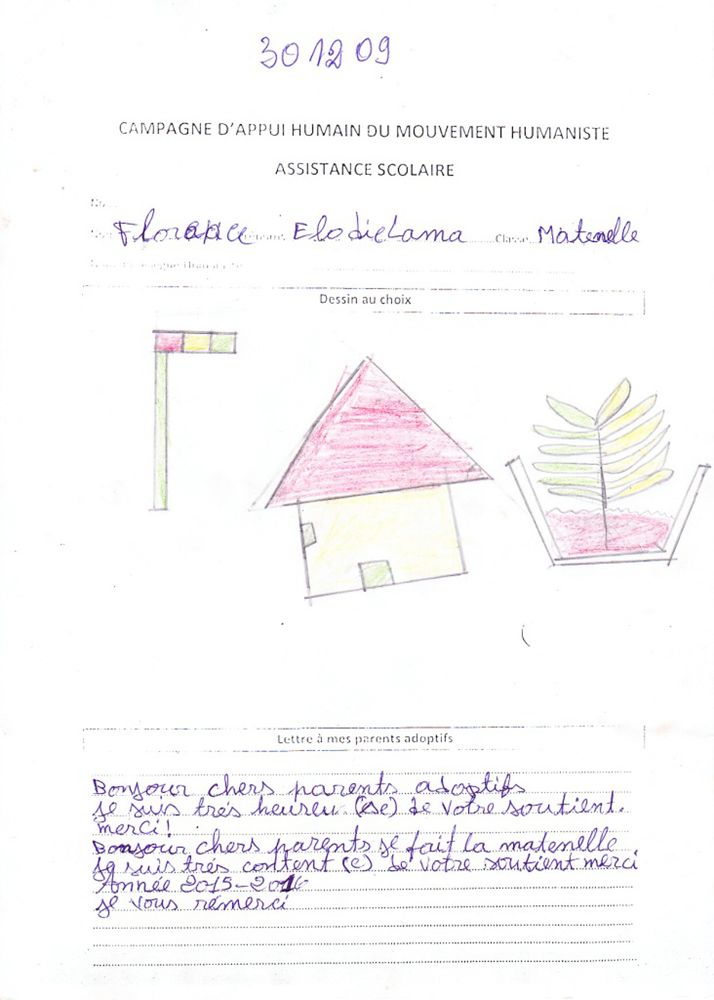 301209
CAMPAGNE D'APPUI HUMAIN DU MOUVEMENT HUMANISTE
ASSISTANCE SCOLAIRE
Florence Elodie Lama Classe Matenelle
Dessin au choix
Lettre à mes parents adoptifs
Bonjour chers parents adoptifs
je suis très heureu (se) de votre soutient.
merci!
Bonjour chers parents je fait la matenelle
je suis très content (e) de votre soutient merci
Année 2015-2016
je vous remerci